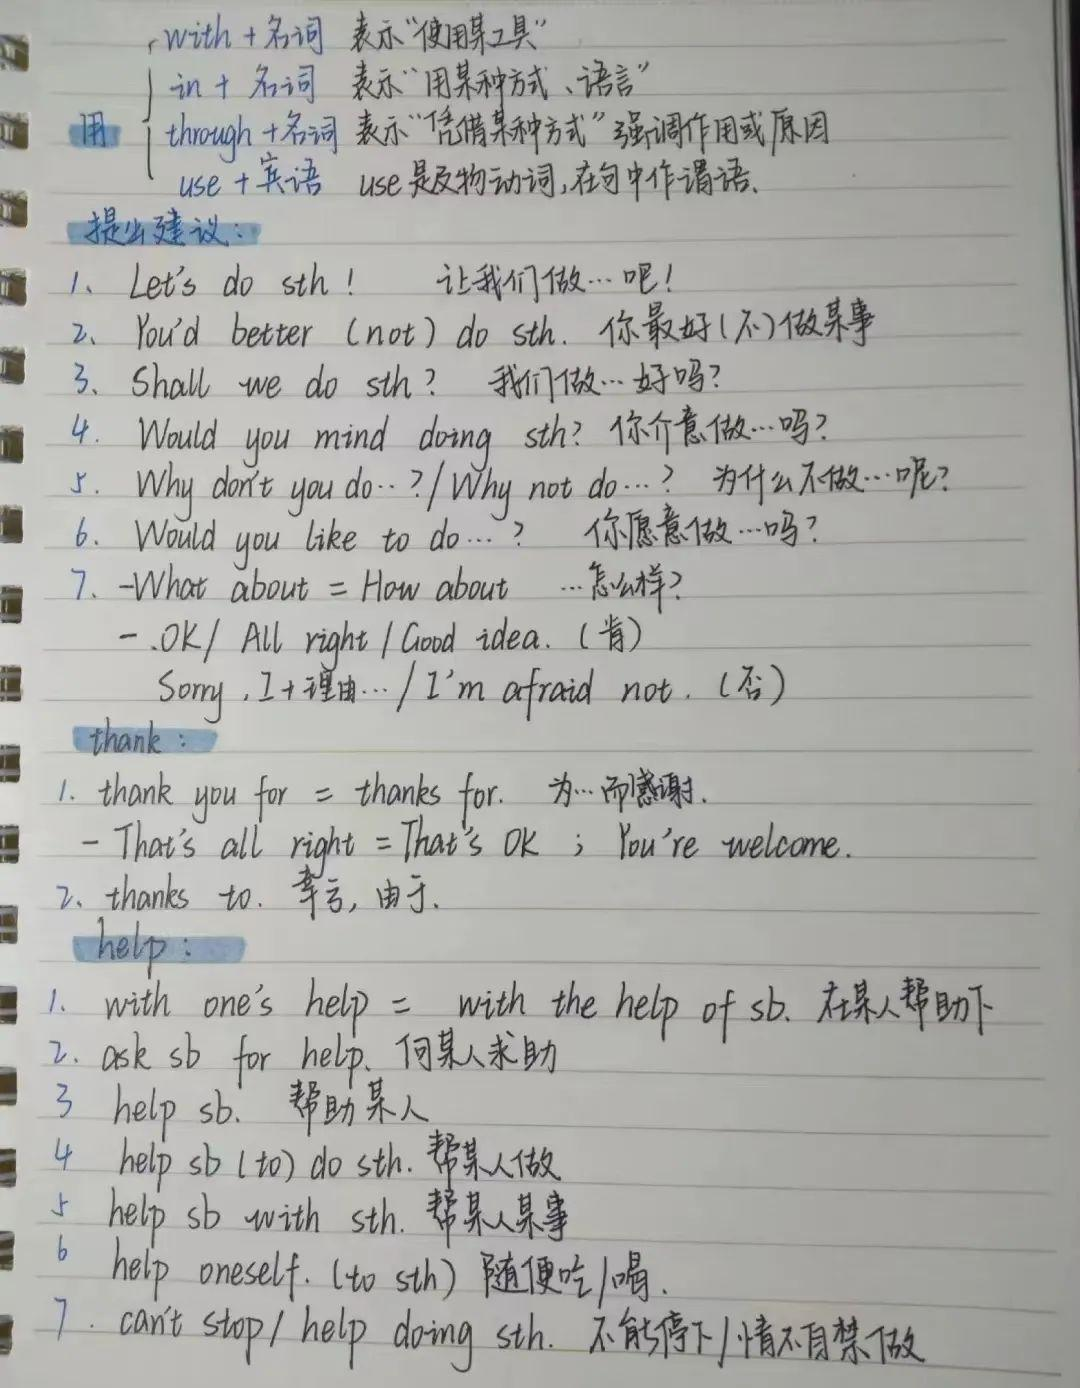 with + 名词 表示“使用某工具”
in + 名词 表示“用某种方式、语言”
用 through + 名词 表示“凭借某种方式”强调作用或原因
use + 宾语 use是及物动词,在句中作谓语.
提出建议:
1、 Let's do sth! 让我们做…吧!
2、 You'd better (not) do sth. 你最好(不)做某事
3、 Shall we do sth? 我们做…好吗?
4. Would you mind doing sth? 你介意做…吗?
5. Why don't you do…?/Why not do…? 为什么不做…呢?
6. Would you like to do…? 你愿意做…吗?
7. -What about = How about …怎么样?
- .OK/ All right / Good idea. (肯)
Sorry, I+理由…/I'm afraid not. (否)
thank:
1. thank you for = thanks for. 为…而感谢.
- That's all right = That's OK ; You're welcome.
2、 thanks to. 幸亏, 由于.
help:
1. with one's help = with the help of sb. 在某人帮助下
2. ask sb for help. 向某人求助
3 help sb. 帮助某人
4 help sb (to) do sth. 帮某人做
5 help sb with sth. 帮某人某事
6 help oneself. (to sth) 随便吃/喝.
7. can't stop/ help doing sth. 不能停下/情不自禁做